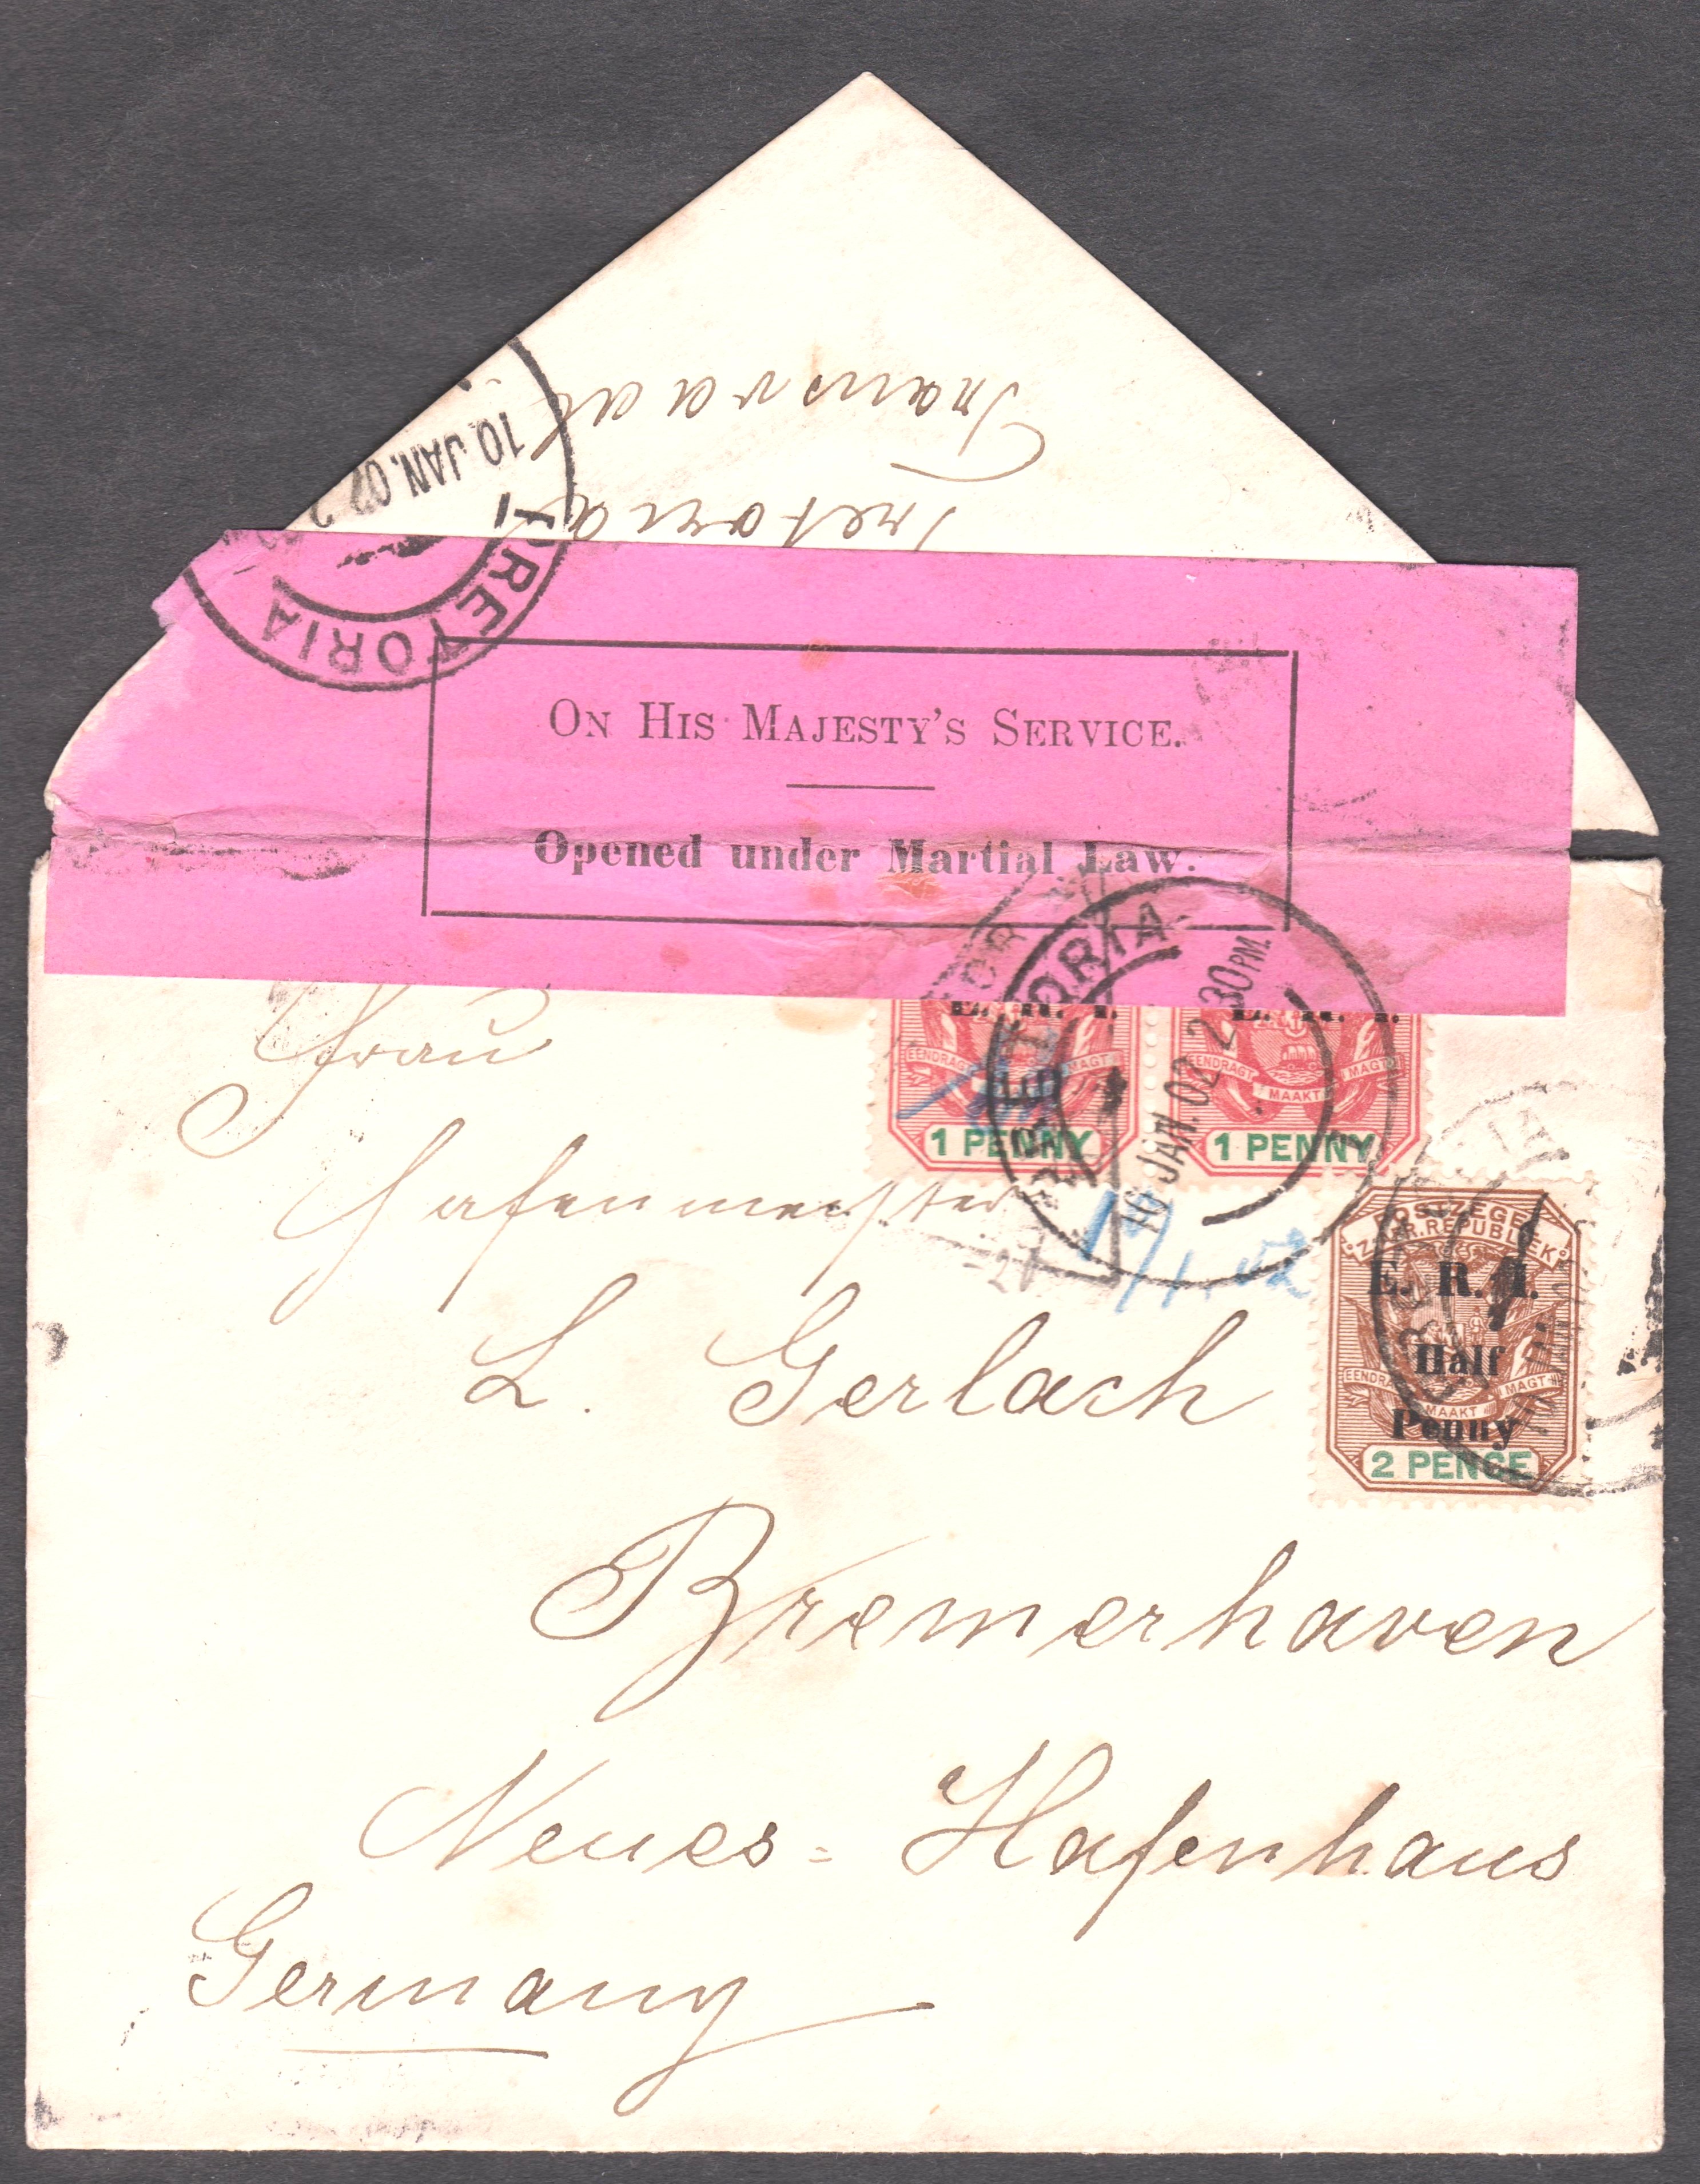 Transvaal
Pretoria
PRETORIA
10 JAN. 02
On His Majesty's Service.
Opened under Martial Law.
E. R. I.
EENDRAGT MAAKT MAGT
1 PENNY
E. R. I.
EENDRAGT MAAKT MAGT
1 PENNY
PRETORIA
10 JAN. 02 2 30 PM.
10/1.02
POSTZEGEL
Z. AFR. REPUBLIEK
E. R. I.
Half
Penny
EENDRAGT MAAKT MAGT
2 PENCE
Frau
Hafenmeister
L. Gerlach
Bremerhaven
Neues=Hafenhaus
Germany